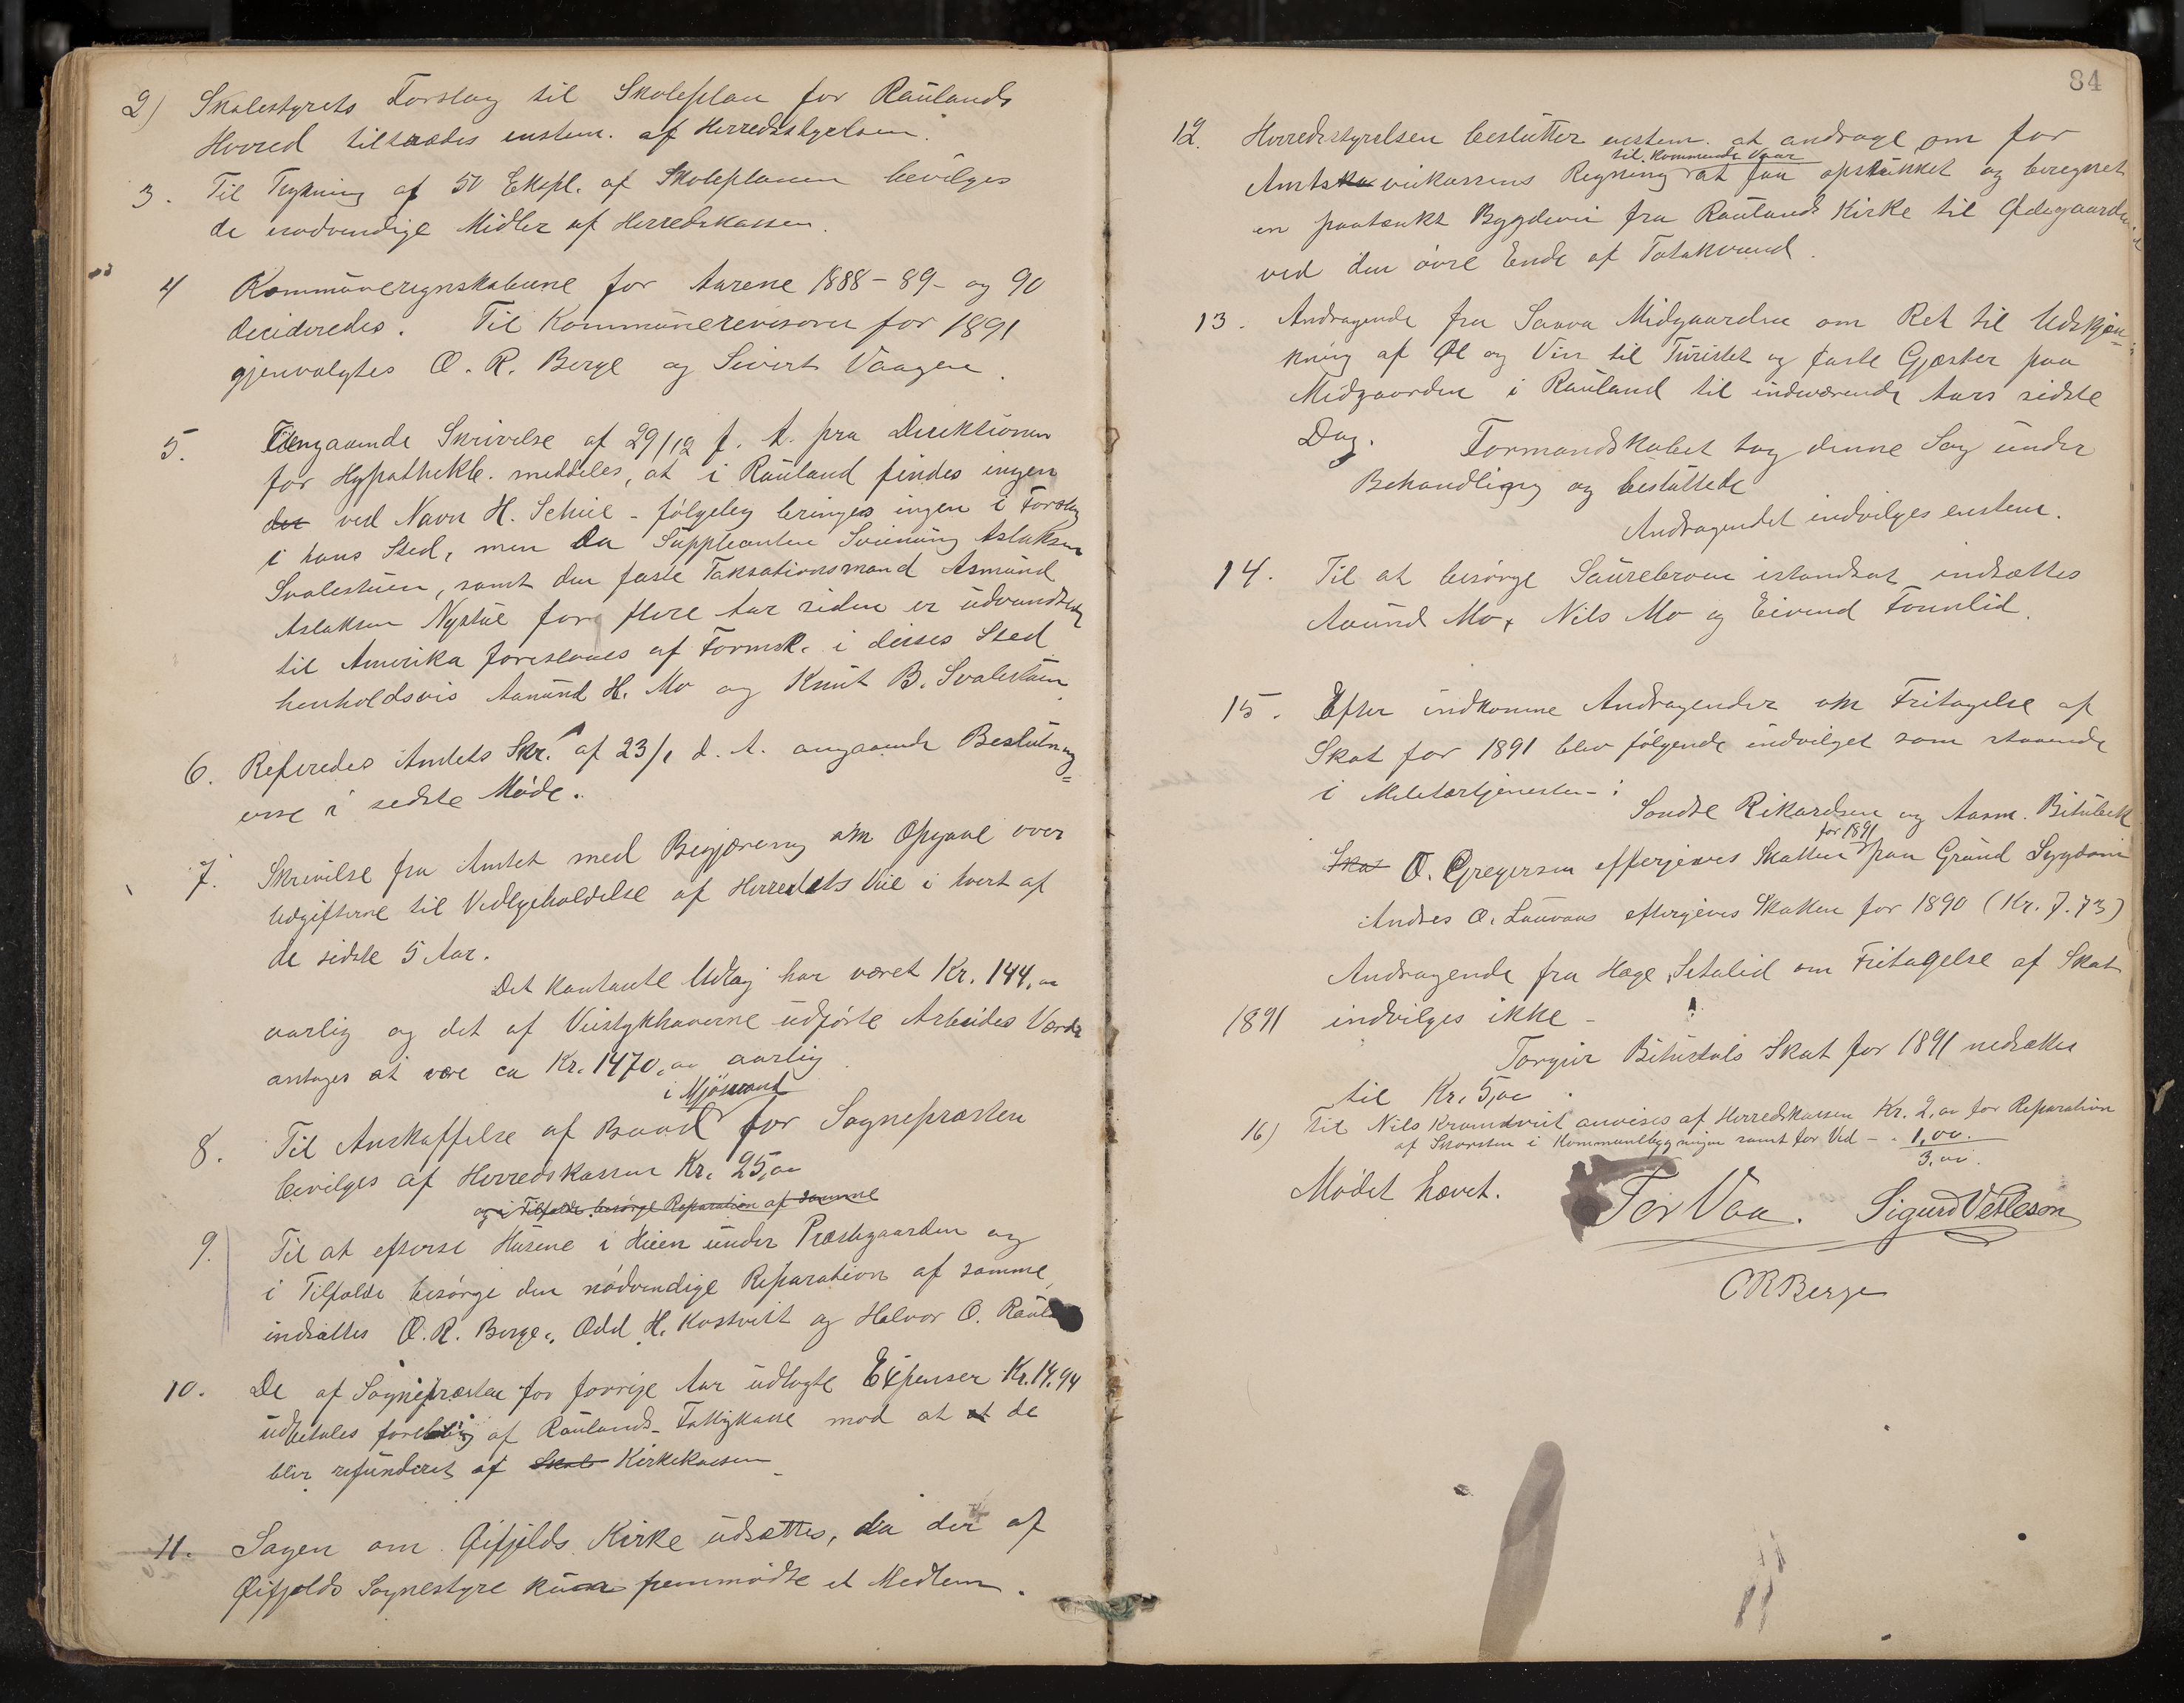 2) Skolestyrets Forslag til Skoleplan for Raulands
Herred tiltrædes enstem. af Herredsstyrelsen.
3. Til Trykning af 50 Ekspl. af Skoleplanen bevilges
de nødvendige Midler af Herredskassen.
4 Kommuneregnskaberne for Aarene 1888 - 89 - og 90
decideredes. Til Kommunerevisorer for 1891
gjenvalgtes O. R. Berge og Sivert Vaagen.
5. Tilengaaende Skrivelse af 29/12 f. A. fra Direktionen
for Hypothekb. meddeles, at i Rauland findes ingen
der ved Navn H. Schiie - følgelig bringes ingen i Forslag
i hans Sted, men da Suppleanten Sveinung Aslaksen
Svalestuen, samt den faste Taksationsmand Asmund
Aslaksen Nystue for flere Aar siden er udvandret
til Amerika foreslaaes af Formsk. i disses Sted
henholdsvis Aanund H. Mo og Knut B. Svalestuen.
6. Refiredes Amtets Skr. af 23/1 d. A. angaaende Beslutning=
erne i sidste Møde.
7. Skrivelse fra Amtet med Begjæring om Opgave over
Udgifterne til Vedligeholdelse af Herredets Veie i hvert af
de sidste 5 Aar.
Det kontante Udlæg har været Kr. 144,00
aarlig og det af Veistykkhaverne udførte Arbeides Værdi
antages at være ca Kr. 1470,00 aarlig
i Mjøsvand
8. Til Anskaffelse af Baad for Sognepræsten
bevilges af Herredskassen Kr. 25,00
og i Tilfælde besørge Reparation af samme
9. Til at efterse Husene i Heien under Præstegaarden og
i Tilfælde besørge den nødvendige Reparation af samme,
indsættes O. R. Berge, Odd H. Kostveit og Halvor O. Raula
10. De af Sognepræsten for forrige Aar udlagte Expenser Kr. 14,94
udbetales foreløbig af Raulands Fattigkasse mod at at de
blir refunderet af Skole Kirkekassen
11. Sagen om Øifjelds Kirke udsættes, da der af
Øifjelds Sognestyre kun fremmødte et Medlem.
84
12. Herredsstyrelsen beslutter enstem. at andrage om for
til kommende Vaar
Amtska veikassens Regning at faa opstukket og beregnet
en paatænkt Bygdevei fra Raulands Kirke til Ødegaarden
ved den øvre Ende af Totakvand.
13. Andragende fra Saava Midgaarden om Ret til Udskjæn=
kning af Øl og Vin til Turister og faste Gjæster paa
Midgaarden i Rauland til indeværende Aars sidste
Dag. Formandskabet tog denne Sag under
Behandling og besluttede
Andragendet indvilges enstem.
14. Til at besørge Saurebroen istandsat indsættes
Aanund Mo, Nils Mo og Eivind Fonnlid.
15. Efter indkomne Andragender om Fritagelse af
Skat for 1891 blev følgende indvilget som staaende
i Militærtjenesten:
Sondre Rikardsen og Aasm. Bitubek
for 1891
Skat O. Gregersen eftergives Skatten paa Grund Sygdom
Andres O. Lauvaas eftergives Skatten for 1890 (Kr. 7.73)
Andragende fra Hæge Setalid om Fritagelse af Skat
1891 indvilges ikke -
Torgeir Bitustøls Skat for 1891 nedsættes
til Kr. 5,00
16) Til Nils Kromviit anvises af Herredskassen Kr. 2,00 for Reparation
af Skorsten i Kommunebygningen samt for Ved - - 1,00.
3,00.
Mødet hævet.
Tor Vaa. Sigurd Vetleson
O R Berge